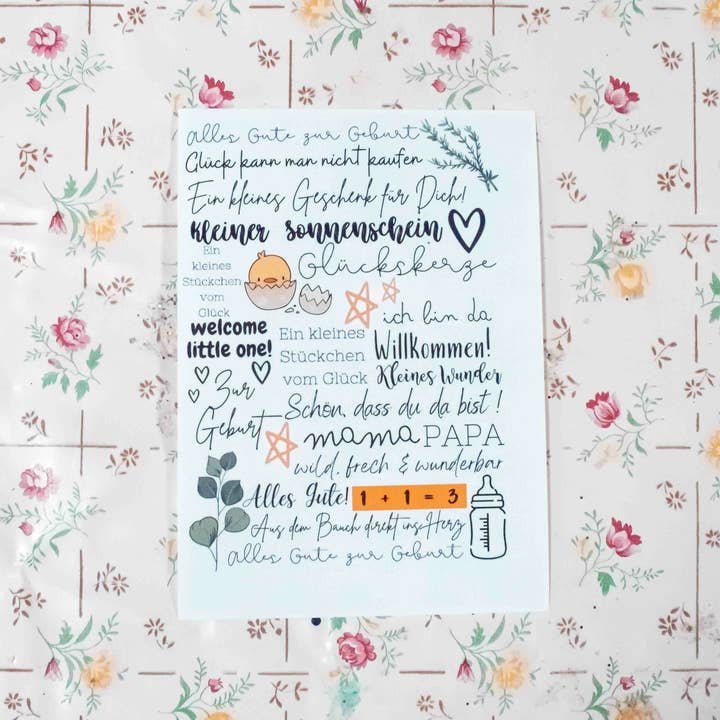 alles Gute zur Geburt
Glück kann man nicht kaufen
Ein kleines Geschenk für Dich!
kleiner sonnenschein
Ein
kleines
Stückchen
vom
Glück
Glückskerze
welcome
little one!
Ein kleines
Stückchen
vom Glück
ich bin da
Willkommen!
Kleines Wunder
Zur
Geburt
Schön, dass du da bist!
mama PAPA
wild, frech & wunderbar
Alles Gute! 1 + 1 = 3
Aus dem Bauch direkt ins Herz
alles Gute zur Geburt